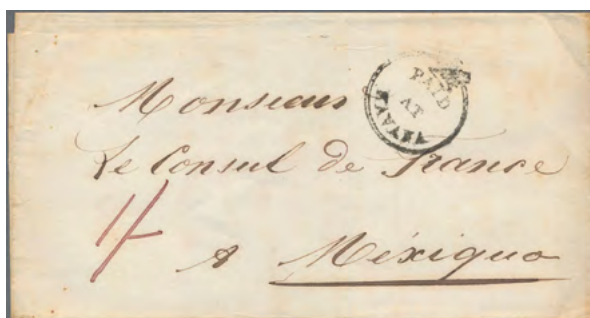 PAID
AT
HAVANA
Monsieur
Le Consul de France
1/
A Méxique